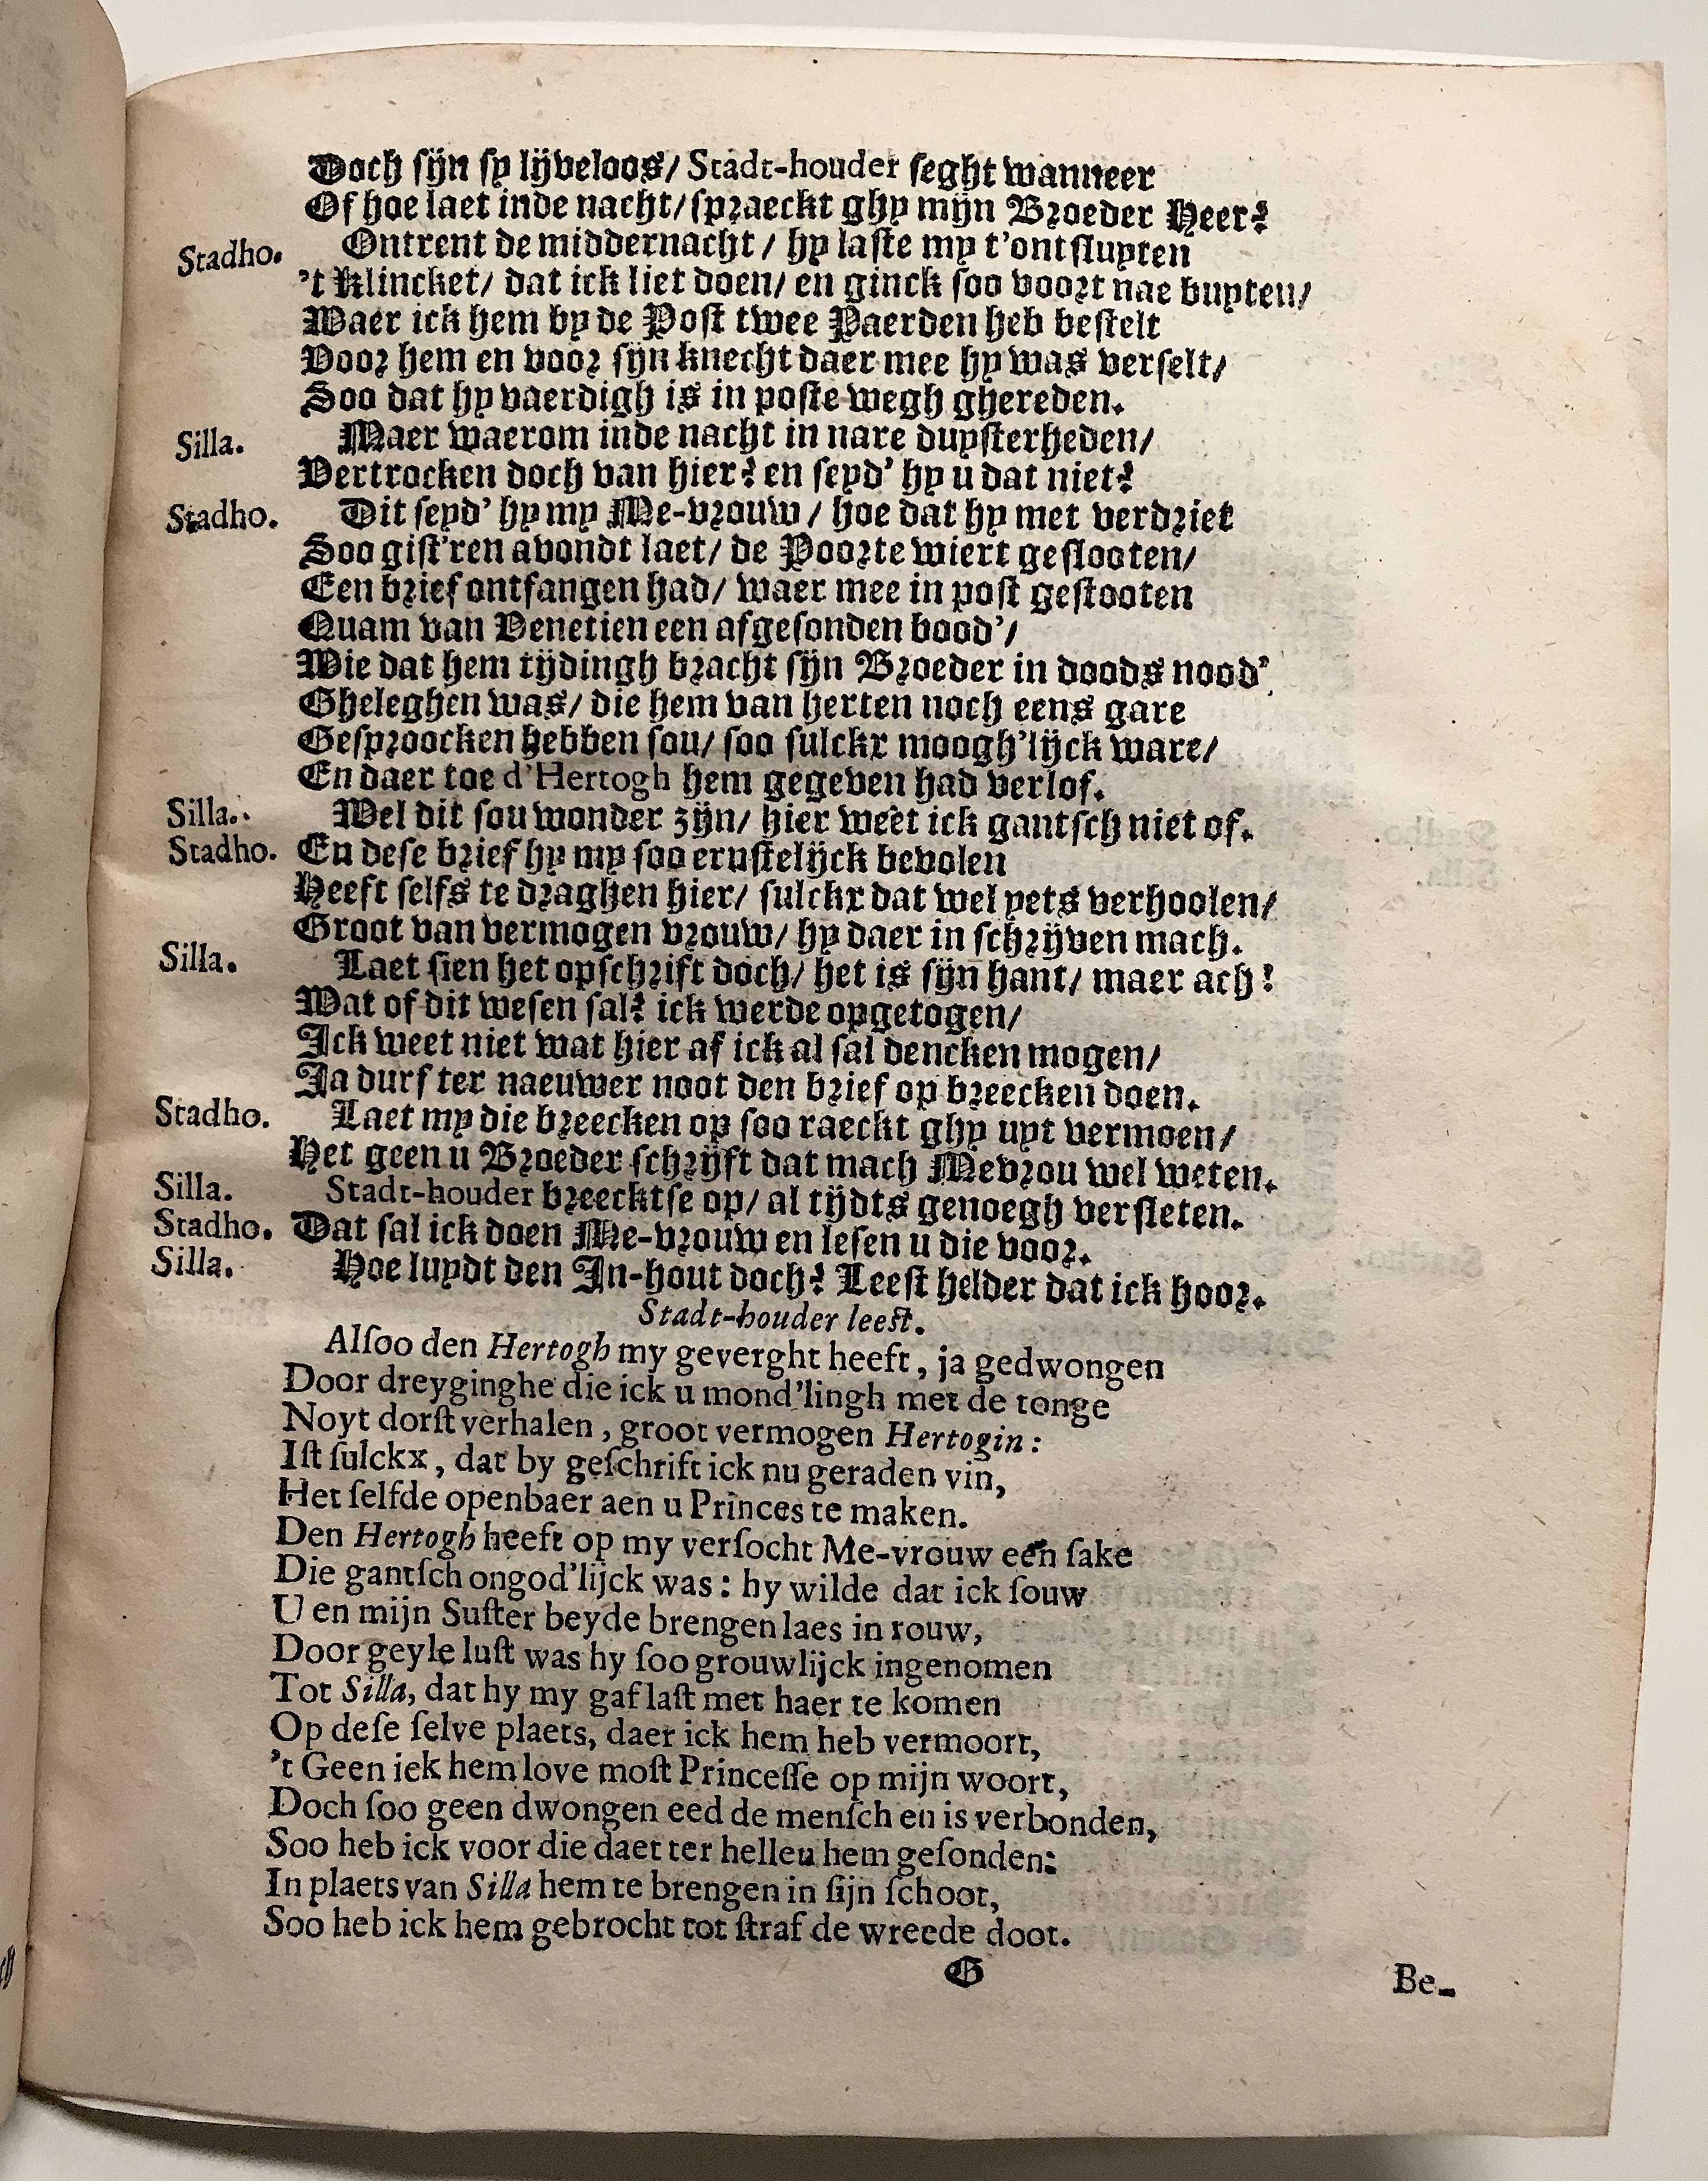 Doch sijn sy lijveloos/ Stadt-houder seght wanneer
Of hoe laet inde nacht/ spraeckt ghy mijn Broeder Heer?
Stadho. Ontrent de middernacht / hy laste my t'ontsluyten
't Klincket/ dat ick liet doen/ en ginck soo voort nae buyten/
Waer ick hem by de Post twee Paerden heb bestelt
Voor hem en voor sijn knecht daer mee hy was verselt/
Soo dat hy vaerdigh is in poste wegh ghereden.
Silla. Maer waerom inde nacht in nare duysterheden/
Vertrocken doch van hier? en seyd' hy u dat niet?
Stadho. Dit seyd' hy my Me-vrouw / hoe dat hy met verdriet
Soo gist'ren avondt laet/ de Poorte wiert geslooten/
Een brief ontfangen had/ waer mee in post gestooten
Quam van Venetien een afgesonden bood'/
Wie dat hem tijdingh bracht sijn Broeder in doods nood'
Gheleghen was/ die hem van herten noch eens gare
Gesproocken hebben sou/ soo sulckx moogh'lijck ware/
En daer toe d'Hertogh hem gegeven had verlof.
Silla. Wel dit sou wonder zijn/ hier weet ick gantsch niet of.
Stadho. En dese brief hy my soo ernstelijck bevolen
Heeft selfs te draghen hier/ sulckx dat wel yets verhoolen/
Groot van vermogen vrouw/ hy daer in schrijven mach.
Silla. Laet sien het opschrift doch/ het is sijn hant/ maer ach!
Wat of dit wesen sal? ick werde opgetogen/
Ick weet niet wat hier af ick al sal dencken mogen/
Ja durf ter naeuwer noot den brief op breecken doen.
Stadho. Laet my die breecken op soo raeckt ghy uyt vermoen/
Het geen u Broeder schrijft dat mach Mevrou wel weten.
Silla. Stadt-houder breecktse op/ al tijdts genoegh versleten.
Stadho. Dat sal ick doen Me-vrouw en lesen u die voor.
Silla. Hoe luydt den In-hout doch? Leest helder dat ick hoor.
Stadt-houder leest.
Alsoo den Hertogh my geverght heeft, ja gedwongen
Door dreyginghe die ick u mond'lingh met de tonge
Noyt dorst verhalen, groot vermogen Hertogin:
Ist sulckx, dat by geschrift ick nu geraden vin,
Het selfde openbaer aen u Princes te maken.
Den Hertogh heeft op my versocht Me-vrouw een sake
Die gantsch ongod'lijck was: hy wilde dat ick souw
U en mijn Suster beyde brengen laes in rouw,
Door geyle lust was hy soo grouwlijck ingenomen
Tot Silla, dat hy my gaf last met haer te komen
Op dese selve plaets, daer ick hem heb vermoort,
't Geen iek hem love most Princesse op mijn woort,
Doch soo geen dwongen eed de mensch en is verbonden,
Soo heb ick voor die daet ter hellen hem gesonden:
In plaets van Silla hem te brengen in sijn schoot,
Soo heb ick hem gebrocht tot straf de wreede doot.
G Be-